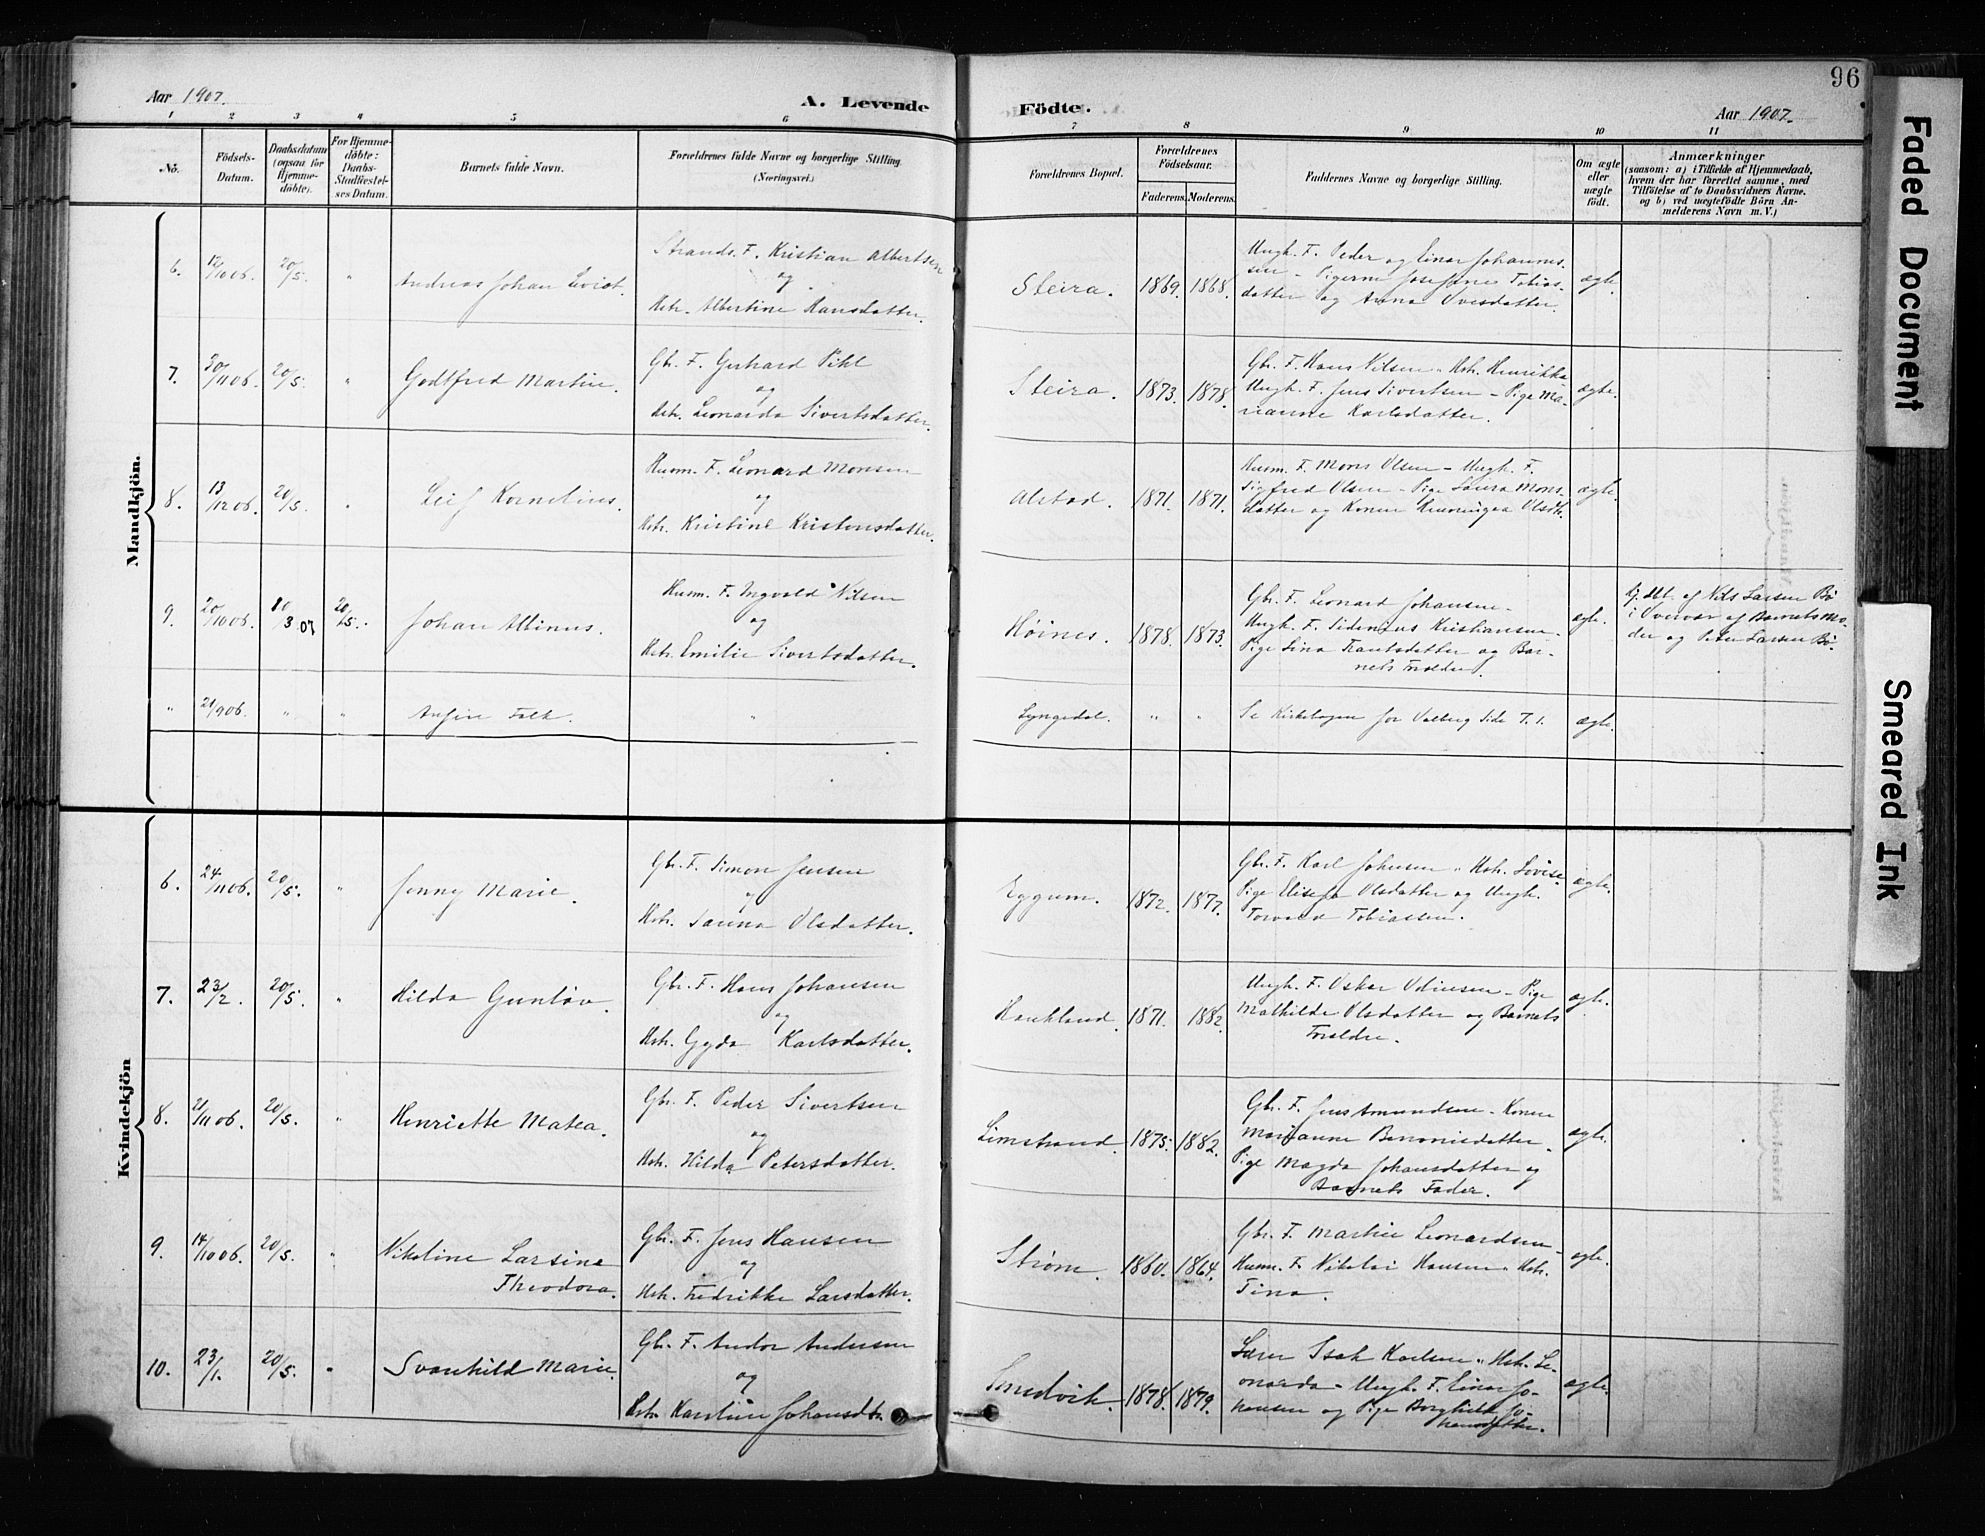 96
Aar 1907.
A. Levende
Födte.
Aar 1907.
1 2 3 4 5 6 7 8 9 10 11
No.
Födsels-
Datum.
Daabsdatum
(ogsaa for
Hjemme-
döbte).
For Hjemme-
döbte:
Daabs-
Stadfæstel-
ses Datum.
Barnets fulde Navn.
Forældrenes fulde Navne og borgerlige Stilling
(Næringsvei.)
Forældrenes Bopæl.
Forældrenes
Födselsaar.
Faderens.
Moderens.
Faddernes Navne og borgerlige Stilling.
Om ægte
eller
uægte
födt.
Anmærkninger
(saasom: a) i Tilfælde af Hjemmedaab,
hvem der har forrettet samme, med
Tilföielse af to Daabsvidners Navne,
og b) ved uægtefödte Börn An-
melderens Navn m. V.)
Mandkjön.
6. 12/10 06. 20/5. " Andreas Johan
Strands. F. Kristian Albertsen
og
Hstr. Albertine Hansdatter.
Steira. 1869. 1868.
Ungk. F. Peder og Einar Johannes-
sen - Pigerne Josefine Tobias-
datter og Anna Ovesdatter.
ægte.
7. 30/11 06. 20/5. " Godtfred Martin.
Gbr. F. Gerhard Pihl
og
Hstr. Leonarda Sivertsdatter.
Steira. 1873. 1878.
Gbr. F. Hans Nilsen " Hst. Henrikka
Ungk. F. Jens Sivertsen - Pige Ma-
rianne Karlsdatter.
ægte.
8. 13/12 06. 20/5. " Leif Kornelius.
Husm. F. Leonard Monsen
og
Hstr. Kristine Kristensdatter.
Alstad. 1871. 1871.
Husm. F. Mons Olsen - Ungk. F.
Sigfred Olsen - Pige Laura Mons-
datter og Konen Olsdtr.
ægte.
9. 20/10 06. 10/3 07 20/5. Johan Albinus.
Husm. F. Ingvald Nilsen
og
Hstr. Emilie Sivertsdatter.
Høines. 1878. 1873.
Gbr. F. Leonard Johansen -
Ungk. F. Sidenius Kristiansen -
Pige Lina Frantsdatter og Bar-
nets Forældre.
ægte.
Hj. dbt. af Nils Larsen Bø
i Overvær af Barnets Mo-
der og Peter Larsen Bø.
" 21/9 06. " " Anfin Falk. "
Lyngedal. " " Se Kirkebogen for Valberg Side 71. ægte.
Kvindekjön
6. 24/11 06. 20/5. " Jenny Marie.
Gbr. F. Simon Jensen
og
Hstr. Hanna Olsdatter.
Eggum. 1872. 1877.
Gbr. F. Karl Johnsen " Hst. Lovise
Pige Elisefa Olsdatter og Ungk.
Torvald Tobiassen.
ægte.
7. 23/2. 20/5. " Hilda Gunløv.
Gbr. F. Hans Johansen
og
Hstr. Gyda Karlsdatter.
Haukland. 1871. 1882.
Ungk. F. Oskar Odinsen - Pige
Mathilde Olsdatter og Barnets
Forældre.
ægte.
8. 21/11 06. 20/5. " Henriette Matea.
Gbr. F. Peder Sivertsen
og
Hstr. Hilda Petersdatter.
Limstrand. 1875. 1882.
Gbr. F. Jens Amundsen - Konen
Marianne Benonisdatter -
Pige Magda Johansdatter og
Barnets Fader.
ægte.
9. 14/10 06. 20/5. " Nikoline Larsine
Theodora.
Gbr. F. Jens Hansen
og
Hstr. Fredrikke Larsdatter.
Strøm. 1860. 1864.
Gbr. F. Martin Leonardsen -
Husm. F. Nikolai Hansen " Hstr.
Tina.
ægte.
10. 23/1. 20/5. " Svanhild Marie.
Gbr. F. Andor Andersen
og
Hstr. Karoline Johansdtr.
Smedvik. 1878. 1879.
Lærer Isak Karlsen " Hstr. Le-
onarda - Ungk. F. Einar Jo-
hansen og Pige Borghild Jo-
hansdatter.
ægte.
Faded Document
Smeared Ink